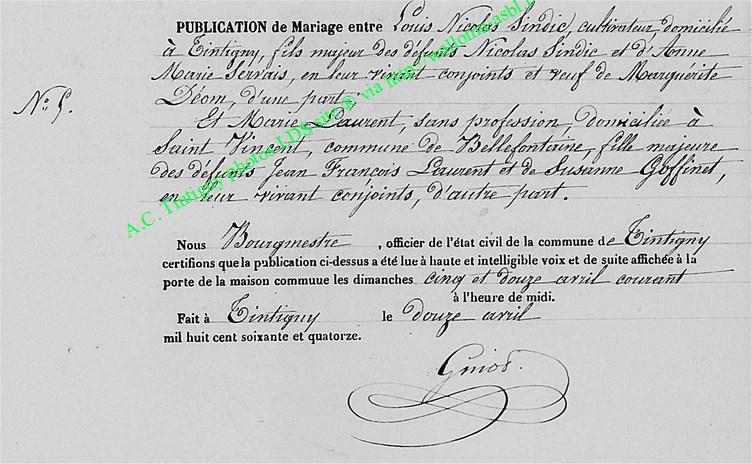 PUBLICATION de Mariage entre Louis Nicolas Sindic, cultivateur, domicilié
à Tintigny, fils majeur des défunts Nicolas Sindic et d'Anne
Marie Servais, en leur vivant conjoints et veuf de Marguérite
Déom, d'une part,
N° 5.
Et Marie Laurent, sans profession, domiciliée à
Saint Vincent, commune de Bellefontaine, fille majeure
des défunts Jean François Laurent et de Susanne Goffinet,
en leur vivant conjoints, d'autre part.
A.C. Tintigny photos LDS via http://wallonia.asbl
Nous Bourgmestre, officier de l'état civil de la commune de Tintigny
certifions que la publication ci-dessus a été lue à haute et intelligible voix et de suite affichée à la
porte de la maison commune les dimanches cinq et douze avril courant
à l'heure de midi.
Fait à Tintigny le douze avril
mil huit cent soixante et quatorze.